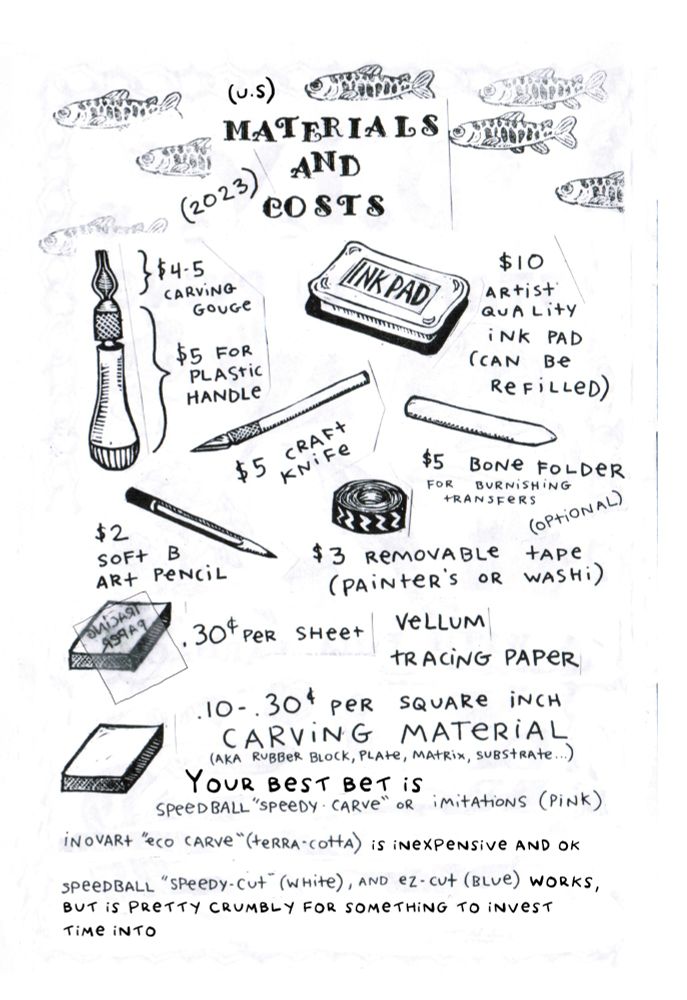 (U.S)
MATERIALS
AND
(2023)
COSTS
$4-5
CARVING
GOUGE
$5 FOR
PLASTIC
HANDLE
INK PAD
$10
ARTIST
QUALITY
INK PAD
(CAN BE
REFILLED)
$5 CRAFT
KNIFE
$5 BONE FOLDER
FOR BURNISHING
TRANSFERS
(OPTIONAL)
$2
SOFT B
ART PENCIL
$3 REMOVABLE TAPE
(PAINTER'S OR WASHI)
TRACING
PAPER
.30¢ PER SHEET
VELLUM
TRACING PAPER
.10-.30¢ PER SQUARE INCH
CARVING MATERIAL
(AKA RUBBER BLOCK, PLATE, MATRIX, SUBSTRATE...)
YOUR BEST BET IS
SPEEDBALL "SPEEDY-CARVE" OR IMITATIONS (PINK)
INOVART "ECO CARVE" (TERRA-COTTA) IS INEXPENSIVE AND OK
SPEEDBALL "SPEEDY-CUT" (WHITE), AND EZ-CUT (BLUE) WORKS,
BUT IS PRETTY CRUMBLY FOR SOMETHING TO INVEST
TIME INTO